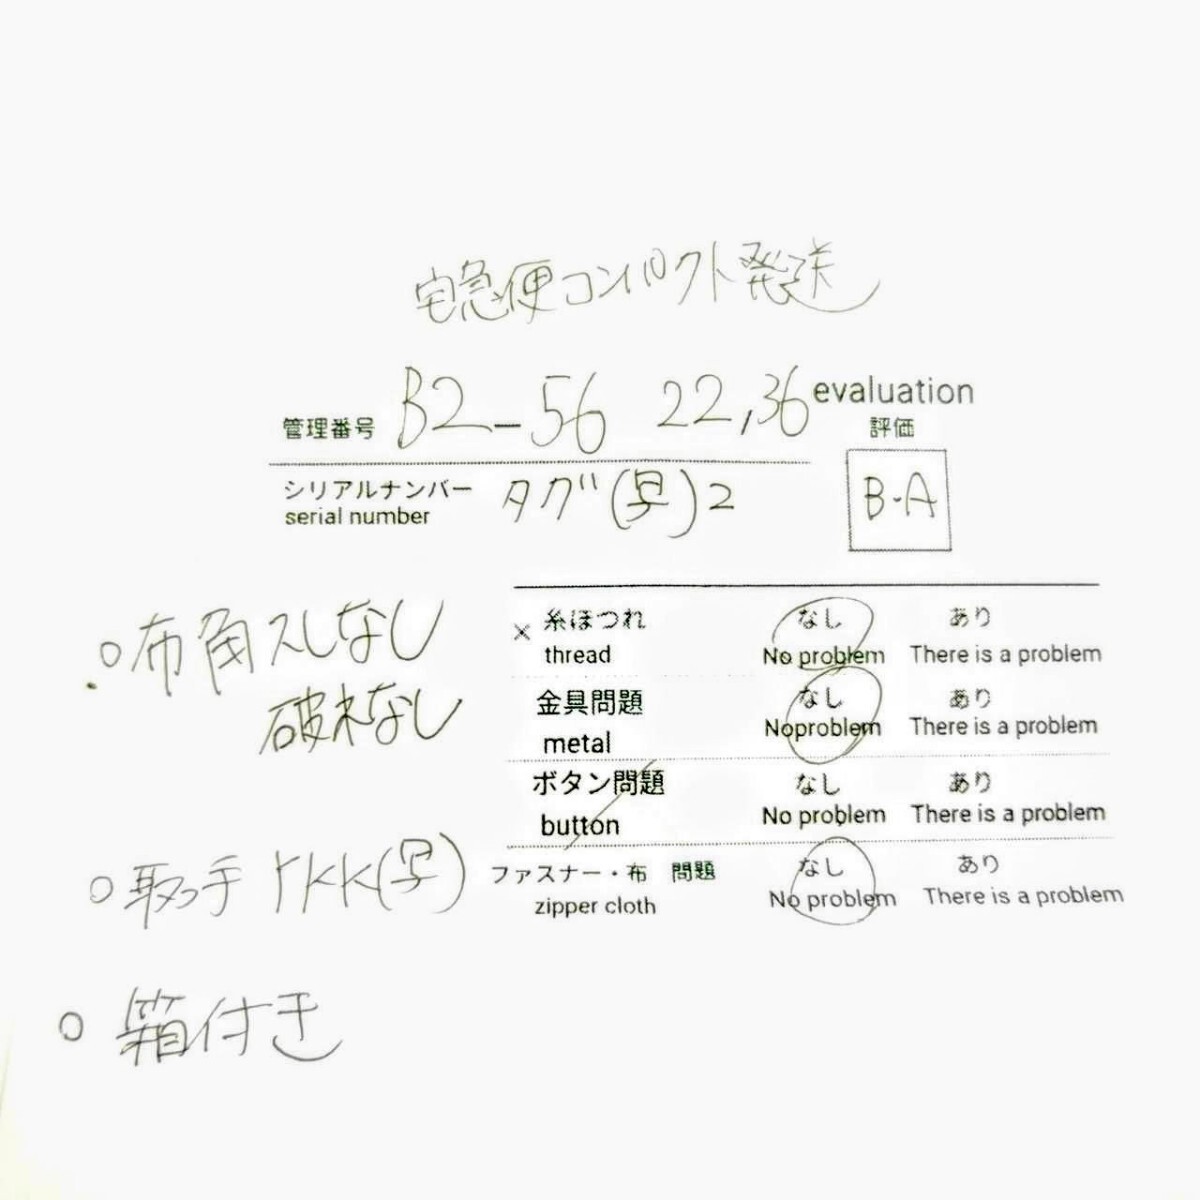 宅急便コンパクト発送
管理番号 B2-56 22,36 evaluation
評価
シリアルナンバー タグ(写)2 B-A
serial number
。布角スレなし
破れなし
× 糸ほつれ なし あり
thread No problem There is a problem
金具問題 なし あり
metal Noproblem There is a problem
ボタン問題 なし あり
button No problem There is a problem
○取っ手 (写) ファスナー・布 問題 なし あり
zipper cloth No problem There is a problem
○ 箱付き